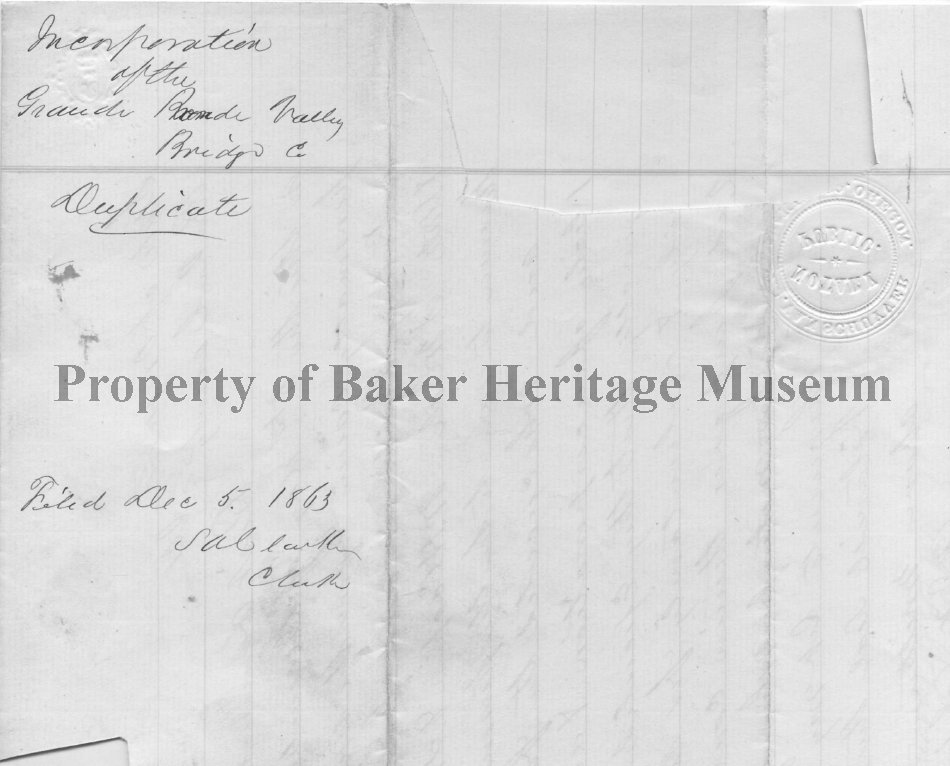 Incorporation
of the
Grande Ronde Valley
Bridge Co
Duplicate
OREGON
PUBLIC
NOTARY
Property of Baker Heritage Museum
Filed Dec 5. 1863
S A Clarke
Clerk